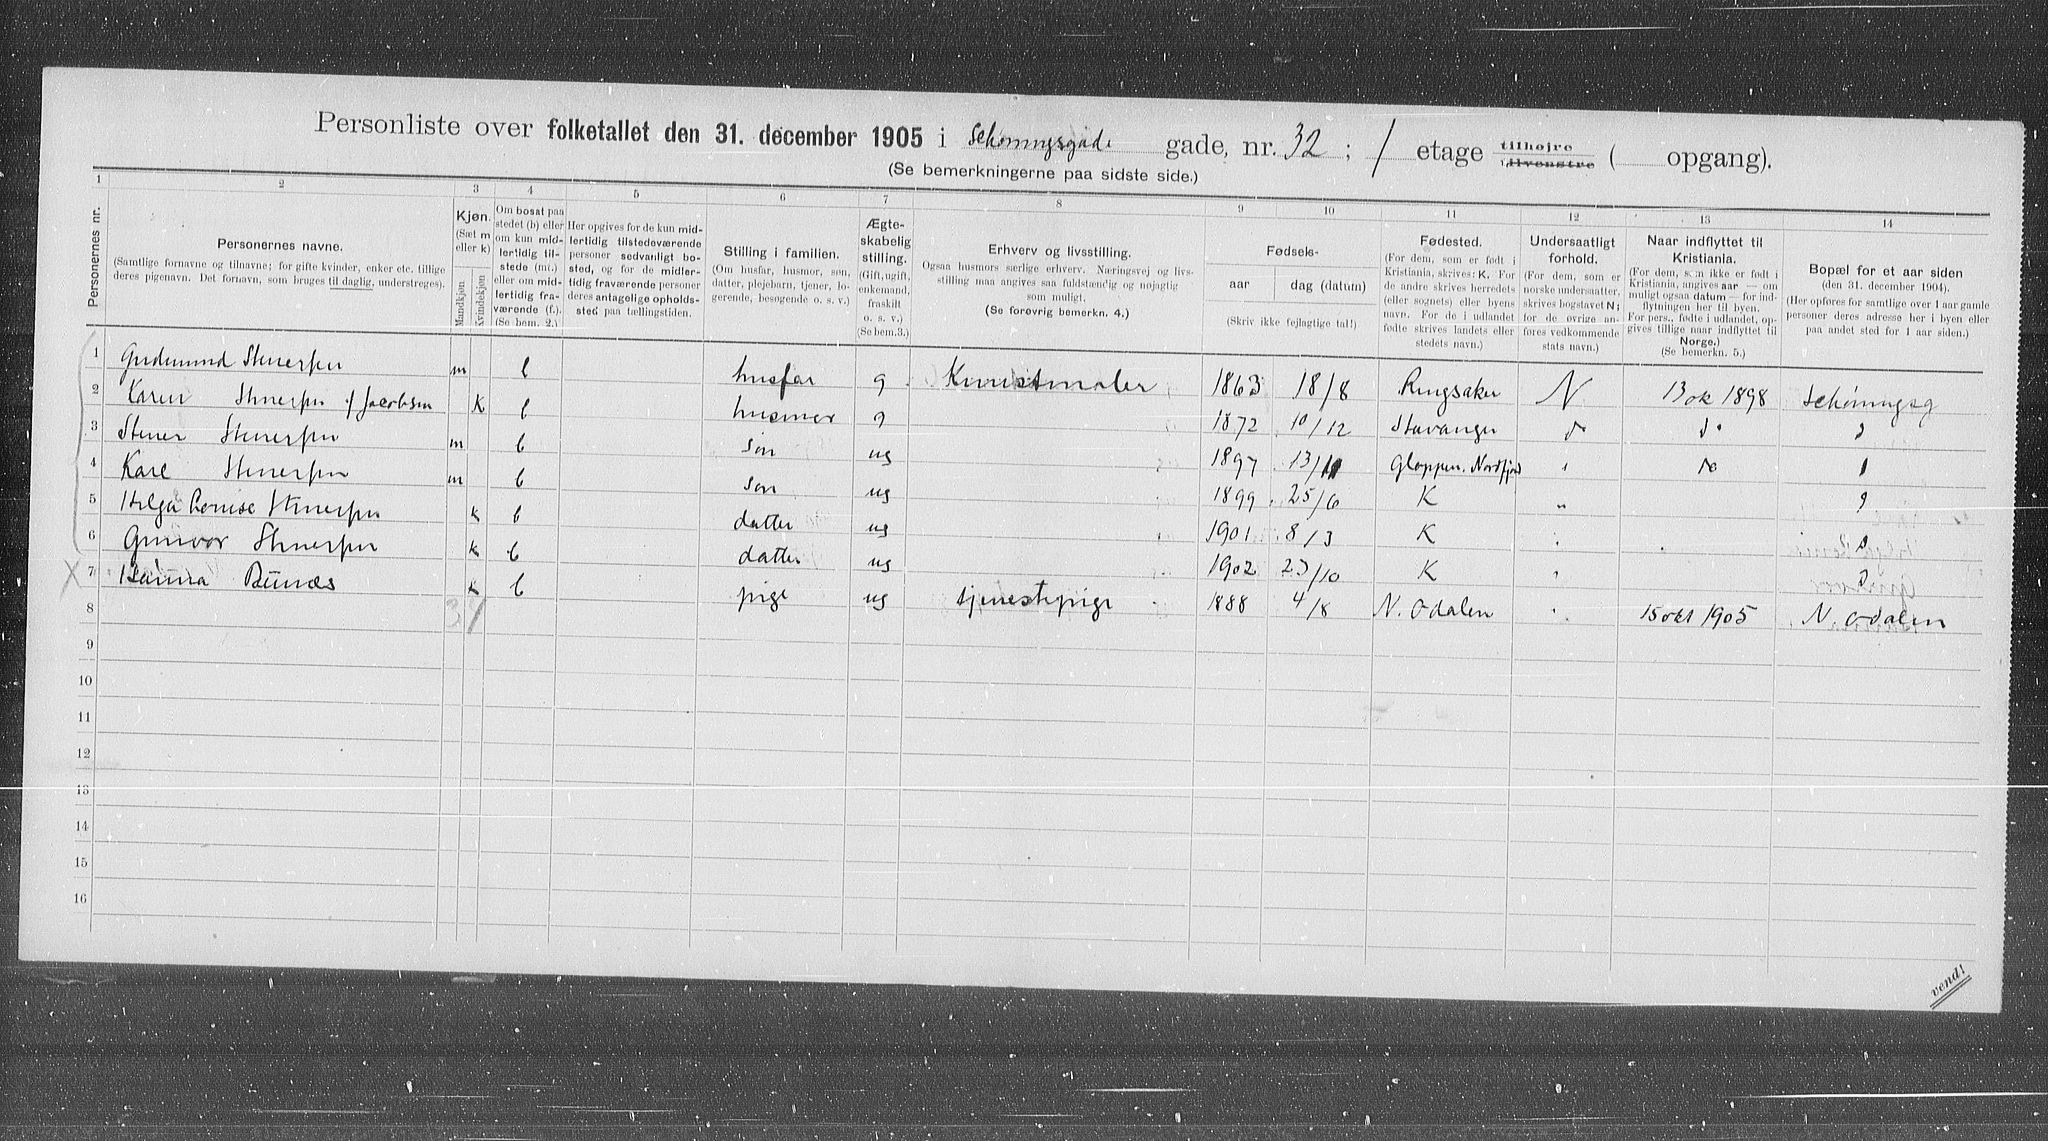 Personliste over folketallet den 31. december 1905 i Schøningsgade gade, nr. 32 ; 1 etage tilhøjre tilvenstre ( opgang).
(Se bemerkningerne paa sidste side.)
1 2 3 4 5 6 7 8 9 10 11 12 13 14
Personernes nr.
Personernes navne.
(Samtlige fornavne og tilnavne; for gifte kvinder, enker etc. tillige
deres pigenavn. Det fornavn, som bruges til daglig, understreges).
Kjøn.
(Sæt m
eller k)
Mandkjøn.
Kvindekjøn.
Om bosat paa
stedet (b) eller
om kun mid-
lertidig til-
stede (mt.)
eller om mid-
lertidig fra-
værende (f.).
(Se bem. 2.)
Her opgives for de kun mid-
lertidig tilstedeværende
personer sedvanligt bo-
sted, og for de midler-
tidig fraværende personer
deres antagelige opholds-
sted paa tællingstiden.
Stilling i familien.
(Om husfar, husmor, søn,
datter, plejebarn, tjener, lo-
gerende, besøgende o. s. v.)
Ægte-
skabelig
stilling.
(Gift, ugift,
enkemand,
fraskilt
o. s. v.)
(Se bem. 3.)
Erhverv og livsstilling.
Ogsaa husmors særlige erhverv. Næringsvej og livs-
stilling maa angives saa fuldstændig og nøjagtig
som muligt.
(Se forøvrig bemerkn. 4.)
Fødsels-
aar dag (datum)
(Skriv ikke fejlagtige tal!)
Fødested.
(For dem, som er født i
Kristiania, skrives: K. For
de andre skrives herredets
(eller sognets) eller byens
navn. For de i udlandet
fødte skrives landets eller
stedets navn.)
Undersaatligt
forhold.
(For dem, som er
norske undersaatter,
skrives bogstavet N;
for de øvrige an-
føres vedkommende
stats navn.)
Naar indflyttet til
Kristiania.
(For dem, som ikke er født i
Kristiania, angives aar — om
muligt ogsaa datum — for ind-
flytningen her til byen.
For pers., fødte i udlandet, op-
gives tillige naar indflyttet til
Norge.)
(Se bemerkn. 5.)
Bopæl for et aar siden
(den 31. december 1904).
(Her opføres for samtlige over 1 aar gamle
personer deres adresse her i byen eller
paa andet sted for 1 aar siden.)
1 Gudmund Stenersen m b husfar g Kunstmaler 1863 18/8 Ringsaker N 13 ok 1898 Schøningsg
2 Karen Stenersen f Jacobsen K b husmor g 1872 10/12 Stavanger
3 Stener Stenersen m b søn ug 1897 13/11 Gloppen. Nordfjord
4 Karl Stenersen m b søn ug 1899 25/6 K "
5 Helga Louise Stenersen k b datter ug 1901 8/3 K
6 Gunvor Stenersen k b datter ug 1902 23/10 K
X 7 Hanna Bunæs k b pige ug tjenestepige 1888 4/8 N. Odalen 15 okt 1905 N. Odalen
8
9
10
11
12
13
14
15
16
vend!